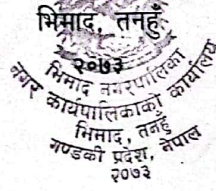 भिमाद, तनहुँ
२०७३
भिमाद नगरपालिका
नगर कार्यपालिकाको कार्यालय
भिमाद, तनहुँ
गण्डकी प्रदेश, नेपाल
२०७३